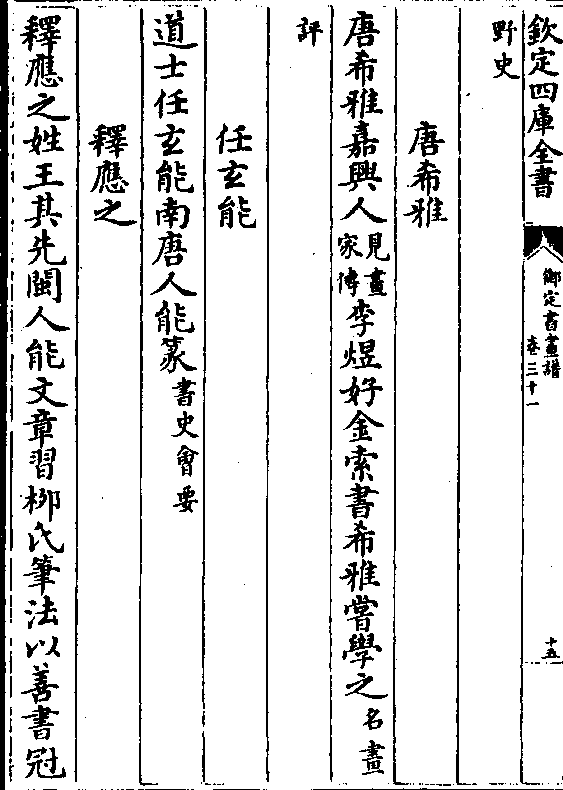 欽定四庫全書
御定書畫譜
卷三十一
十五
野史
唐希雅
唐希雅嘉興人見畫家傳李煜好金索書希雅嘗學之名畫
評
任玄能
道士任玄能南唐人能篆書史會要
釋應之
釋應之姓王其先閩人能文章習桞氏筆法以善書冠